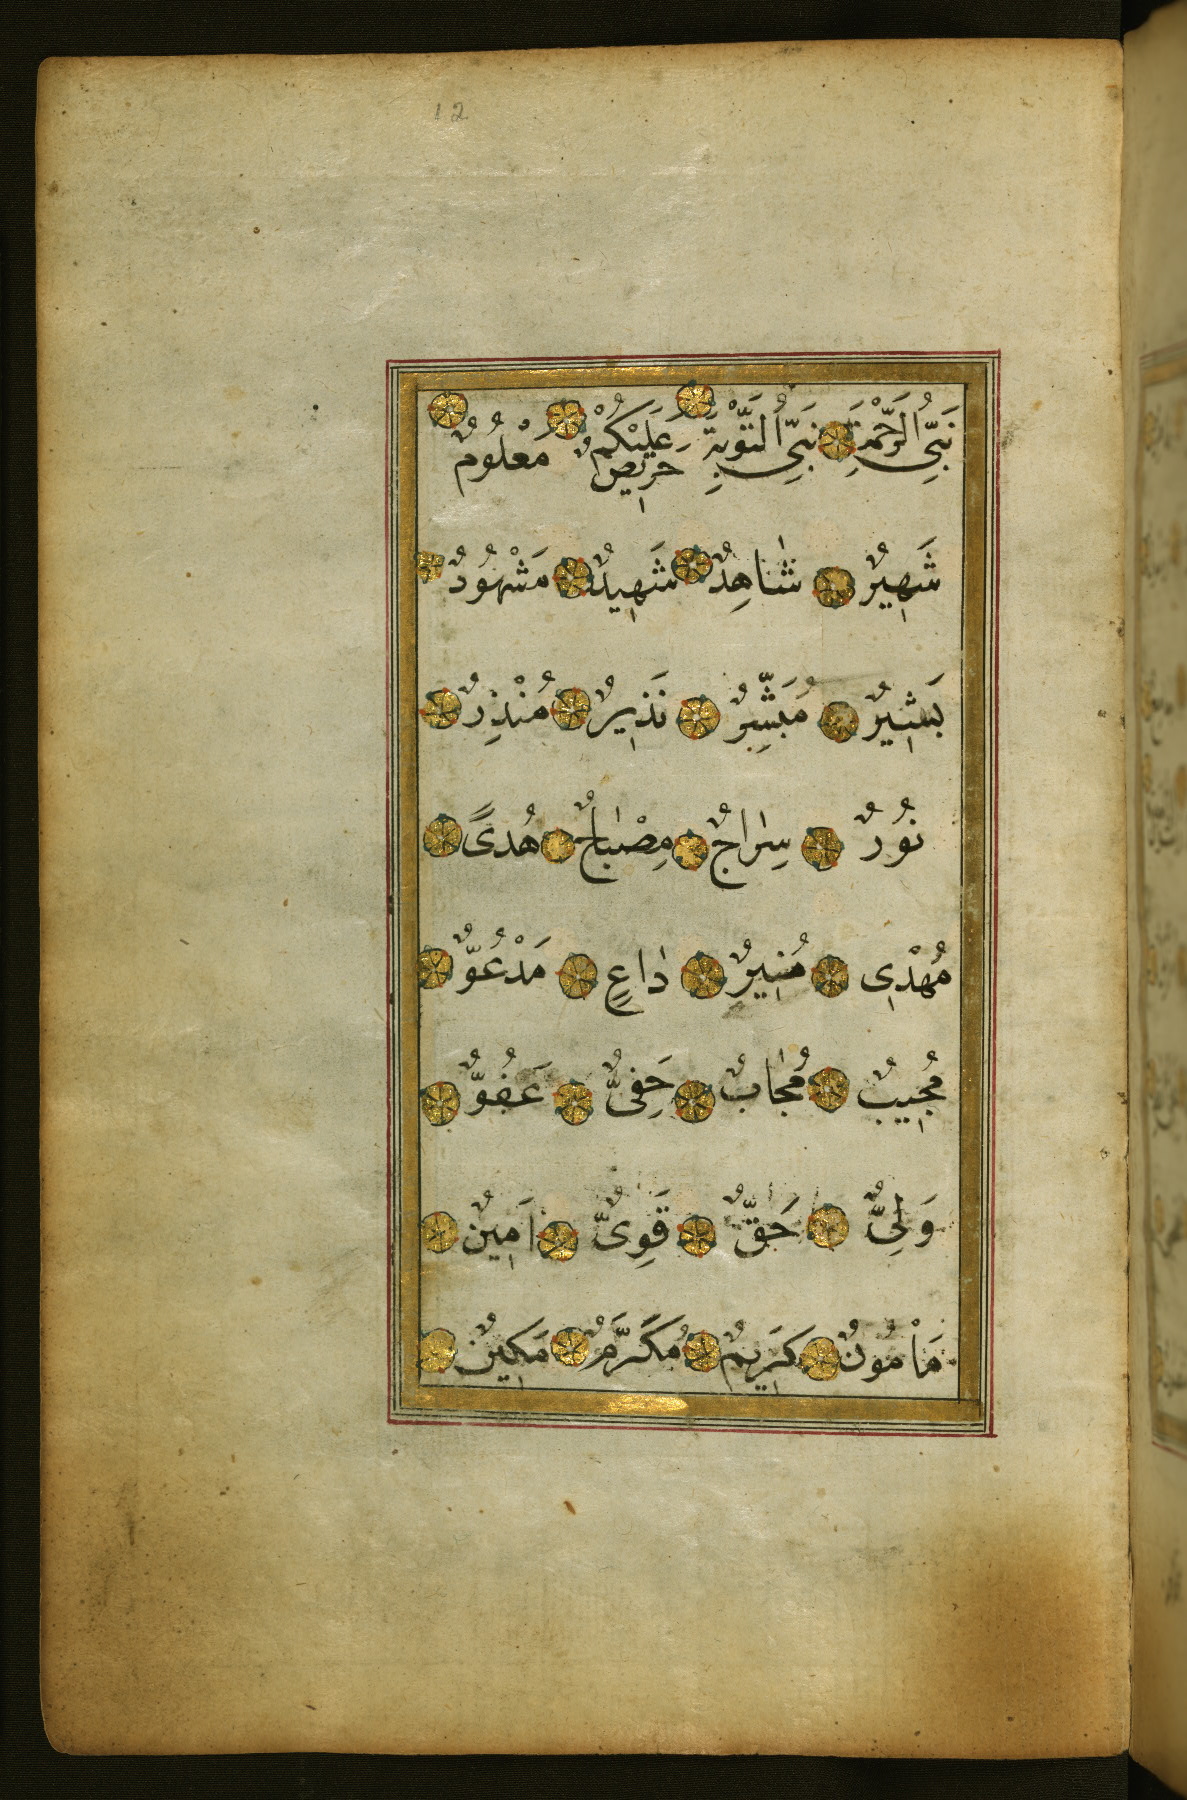 12
نَبِىُّ الرَّحْمَةِ نَبِىُّ التَّوْبَةِ حَرِيصٌ عَلَيْكُمْ مَعْلُومٌ
شَهِيرٌ شَاهِدٌ شَهِيدٌ مَشْهُودٌ
بَشِيرٌ مُبَشِّرٌ نَذِيرٌ مُنْذِرٌ
نُورٌ سِرَاجٌ مِصْبَاحٌ هُدىً
مُهْدِى مُنِيرٌ دَاعٍ مَدْعُوٌّ
مُجِيبٌ مُجَابٌ حَفِىٌّ عَفُوٌّ
وَلِىٌّ حَقٌّ قَوِىٌّ اَمِينٌ
مَأْمُونٌ كَرِيمٌ مُكَرَّمٌ مَكِينٌ